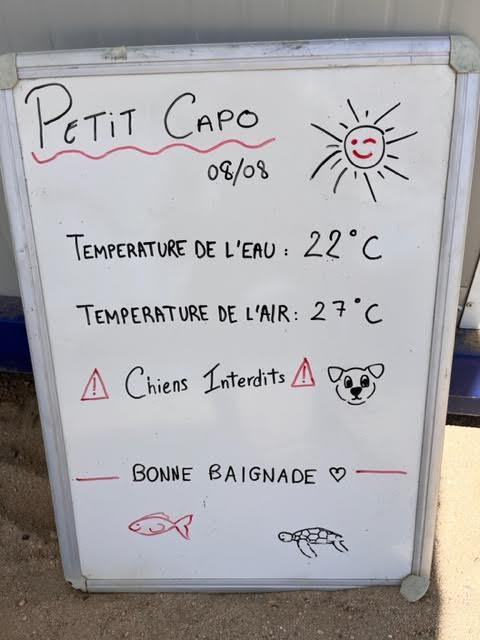 PETiT CAPO
08/08
TEMPERATURE DE L'EAU : 22°C
TEMPERATURE DE L'AIR : 27°C
! Chiens Interdits !
BONNE BAIGNADE ♡